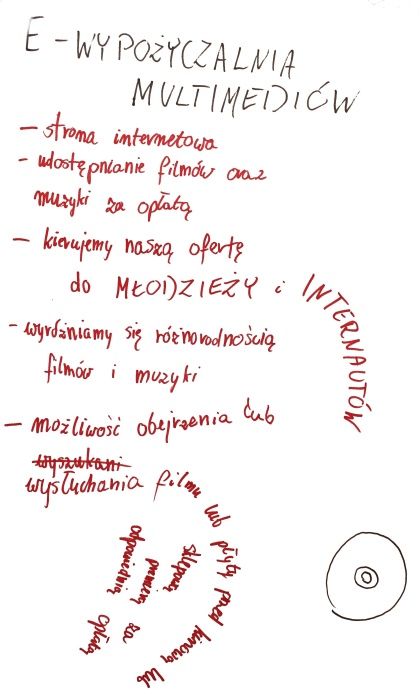 E - WYPOŻYCZALNIA
MULTIMEDIÓW
- strona internetowa
- udostępnianie filmów oraz
muzyki za opłatą
- kierujemy naszą ofertę
do MŁODZIEŻY i INTERNAUTÓW
- wyróżniamy się różnorodnością
filmów i muzyki
- możliwość obejrzenia lub
wyszukani
wysłuchania filmu lub płyty przed kinową lub
sklepową premierą za
odpowiednią opłatą